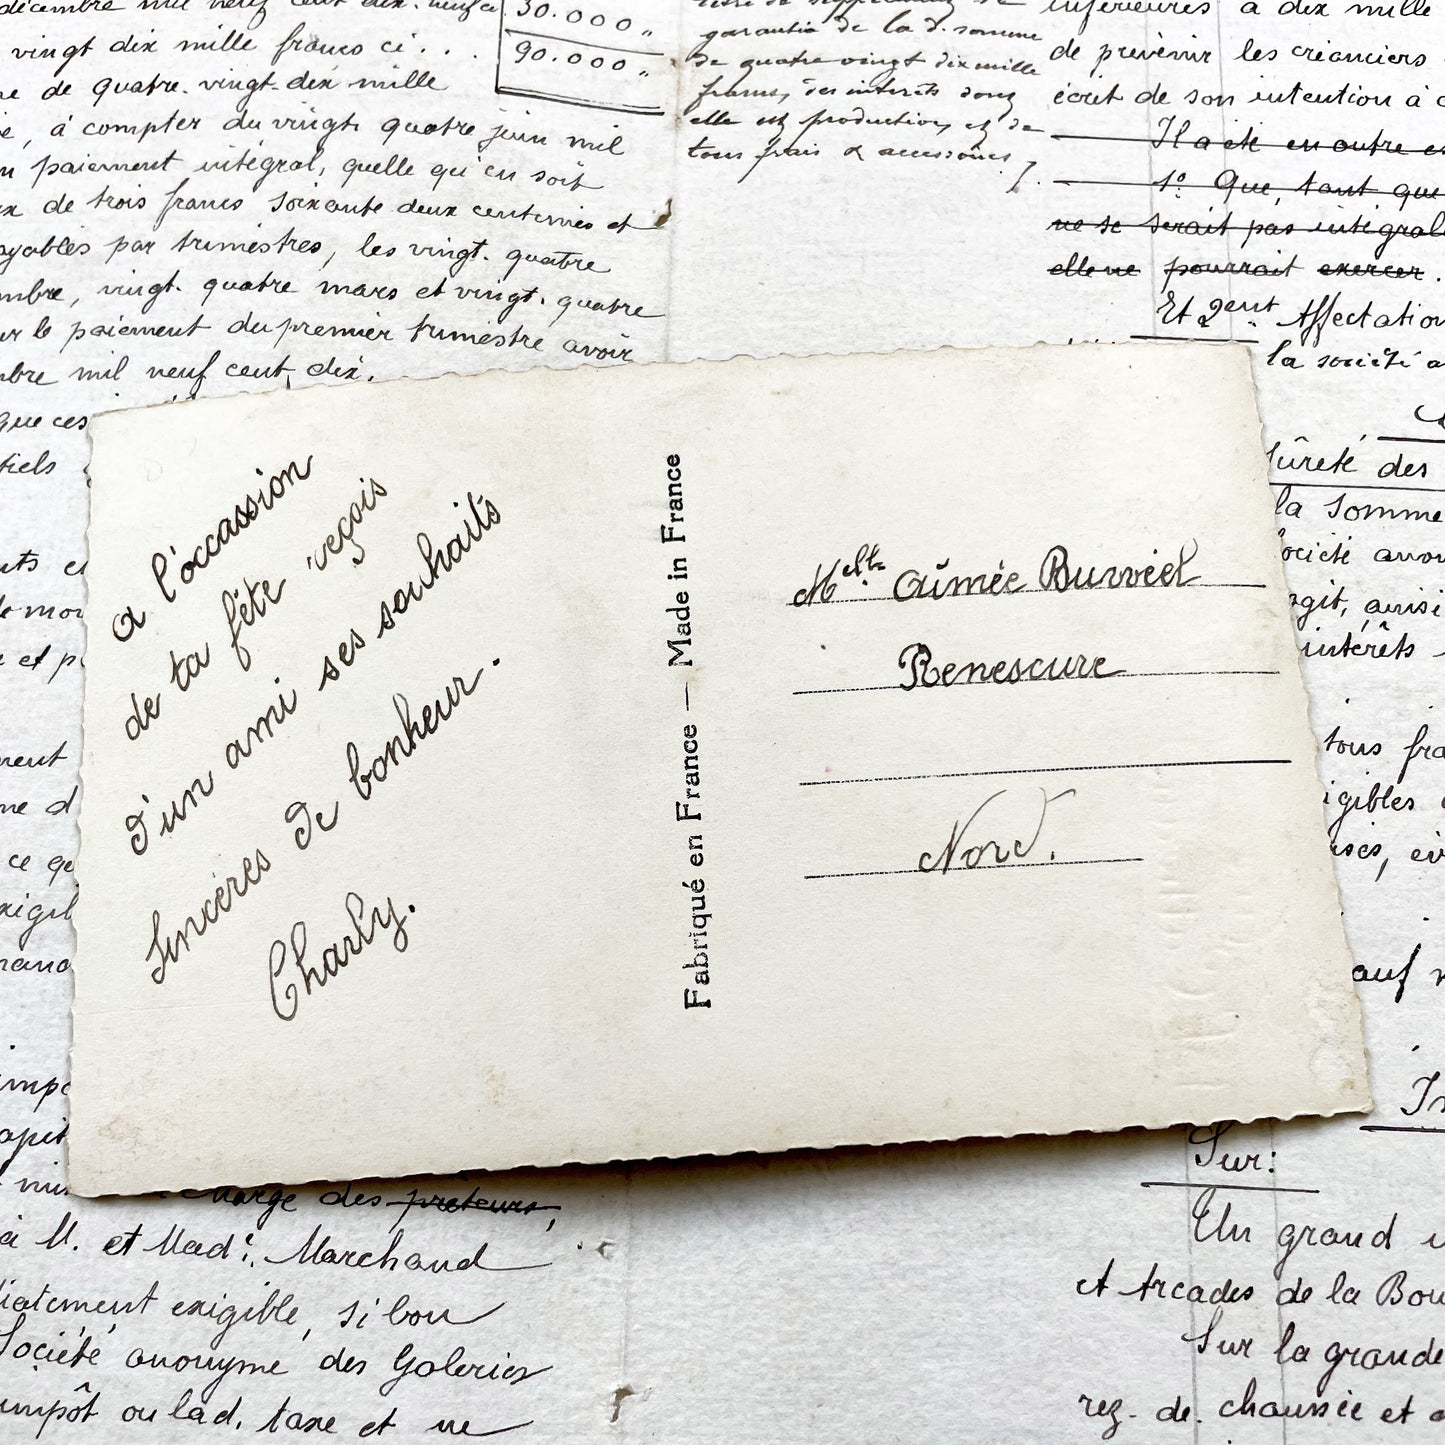 décembre mil neuf cent dix. neuf
30.000 "
vingt dix mille francs ci . . .
90.000 "
de quatre. vingt. dix mille
, à compter du vingt. quatre juin mil
paiement intégral, quelle qu'en soit
de trois francs soixante deux centimes et
payables par trimestres, les vingt. quatre
mbre, vingt. quatre mars et vingt. quatre
le paiement du premier trimestre avoir
mbre mil neuf cent dix.
que ces
tiels
garantie de la d. somme
de quatre vingt dix mille
francs, des intérêts dont
elle est productive, et de
tous frais & accessoires %.
inférieures à dix mille
de prévenir les créanciers
écrit de son intention à
Il a été en outre
1º Que, tant que
ne se serait pas intégral
elle ne pourrait exercer.
Et 2ent. Affectation
la société
sûreté des
la somme
société anon
agit, ainsi
intérêts
tous fra
igibles
auf
a l'occassion
de ta fête reçois
d'un ami ses souhaits
sincères de bonheur.
Charly.
Fabriqué en France — Made in France
Melle Aimée Buvviel
Renescure
Nord.
ment
ce que
exigibl
charge des prêteurs,
à M. et Made. Marchand
diatement exigible, si bon
Société anonyme des Galeries
impôt ou lad. taxe et ne
Sur:
Un grand
et Arcades de la Bou
Sur la grande
rez. de. chaussée et